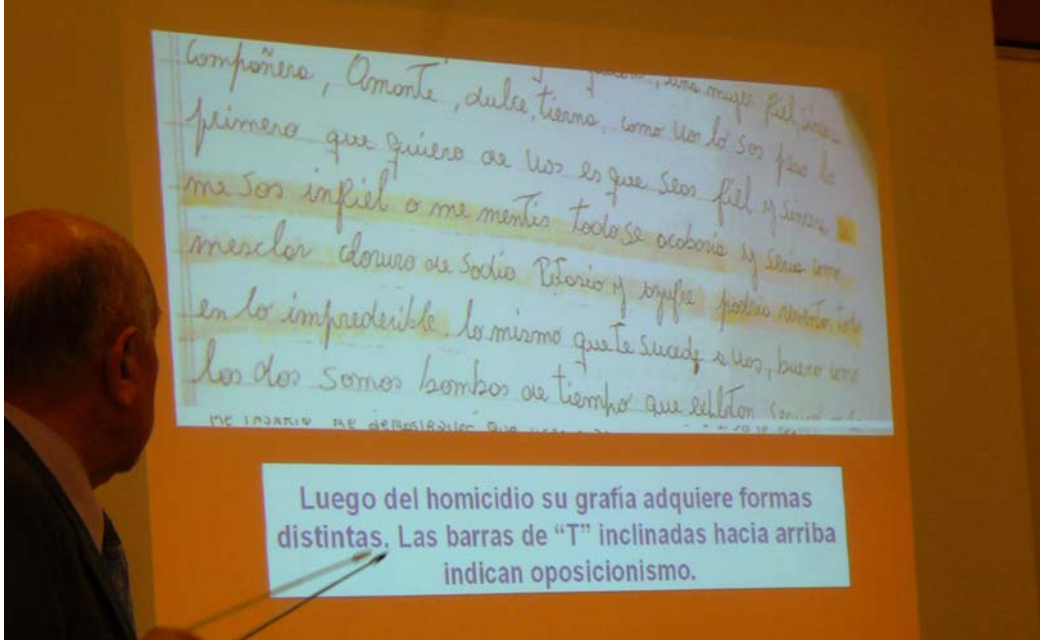 mujer fiel,
Compañera, Amante, dulce, tierna, como vos lo sos pero lo
primero que quiero de vos es que seas fiel y sincera
me sos infiel o me mentis todo se acabaria y seria como
mesclar cloruro de Sodio Potasio y azufre podria
en lo impredecible lo mismo que te sucede a vos, bueno
los dos somos bombas de tiempo que
que
Luego del homicidio su grafía adquiere formas
distintas. Las barras de “T” inclinadas hacia arriba
indican oposicionismo.